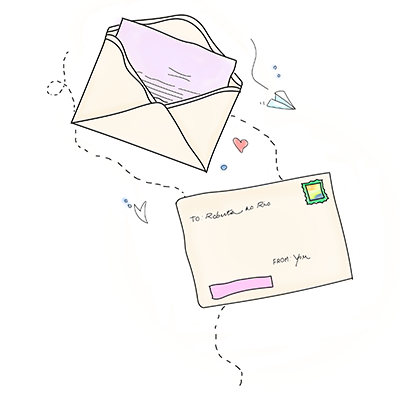 TO: Roberta do Rio
FROM: You